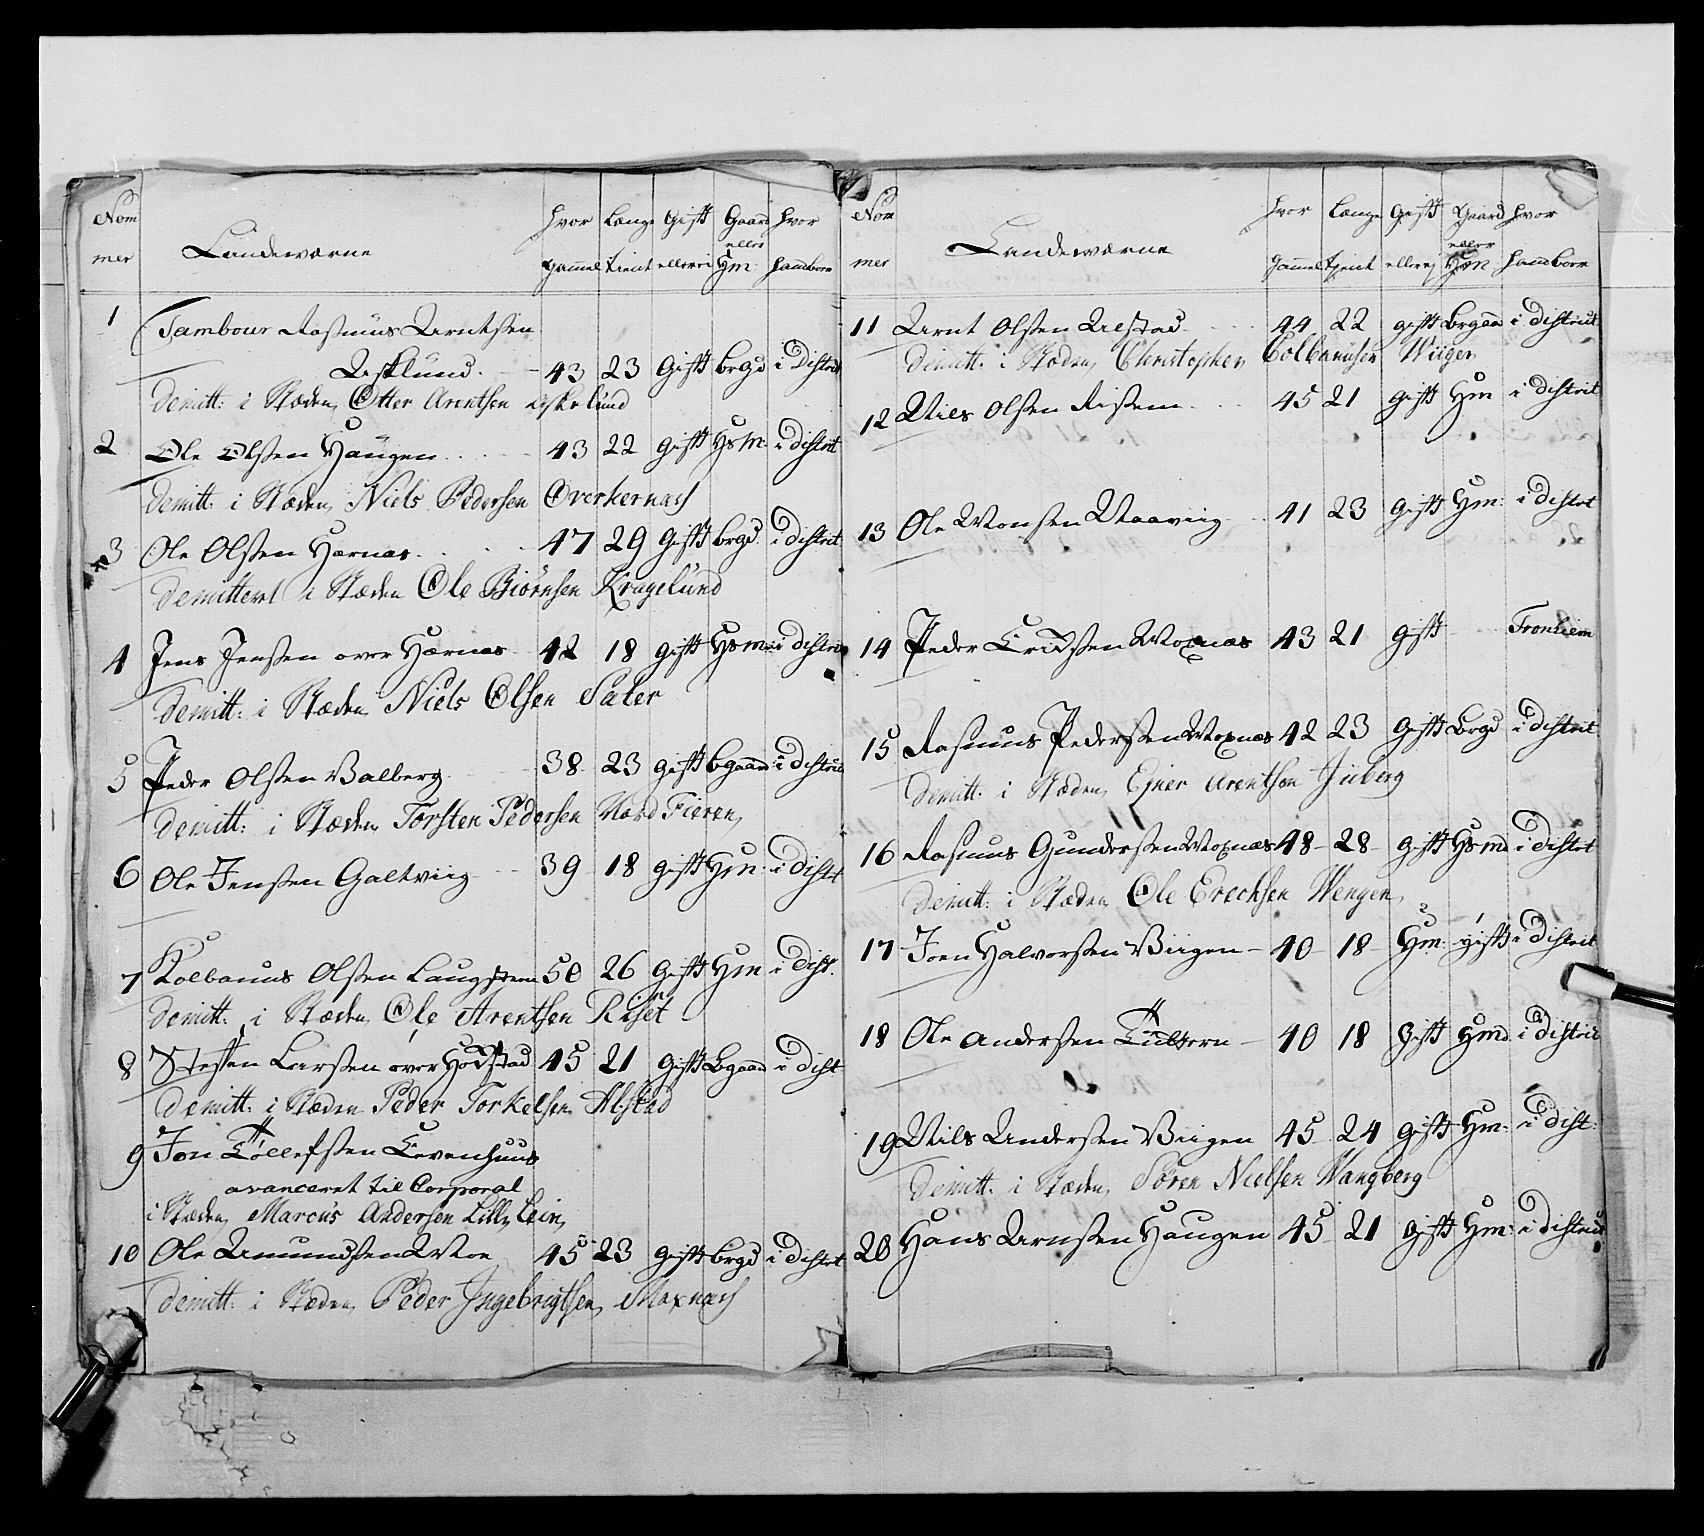 Nom mer Landeværne hvor gammel Længe tient Gift eller ei Gaard eller Hm: hvor hand boer
1 Tambour Rasmus Arntsen
Asklund. 43 23 Gift brgd i Distrit
demitt: i Stæden Otter Arentsen Askelund
2 Ole Olsen Haugen 43 22 gift Hsm: i distrit
demitt: i Stæden Niels Pedersen Overkernæs
3 Ole Olsen Hærnæs 47 29 gift brgd. i distrit
demitteret i Stæden Ole Biörnsen Kragelund
4 Jens Jensen over Hærnæs 42 18 gift Hsmd i distrit
demitt: i Stæden Niels Olsen Sater
5 Peder Olsen Valberg 38 23 gift bgaard i distrit
demitt: i Stæden Torsten Pedersen Nord Fieren
6 Ole Jensen Galtviig 39 18 gift Hm: i distrt
7 Kolbanus Olsen Laugsteen 50 26 gift Hm i dist.
demitt: i Stæden Ole Arentsen Riset
8 Steffen Larsen over Hodstad 45 21 gift bgaard i dist
demitt: i Stæden Peder Torkelsen Alstad
9 Jon Töllefsen Levenhuus
avanceret til Corporal
i Stæden Marcus Andersen Lille Lein
10 Ole Amundsen Moe 45 23 gift brgd i distrit
demitt: i Stæden Peder Ingebrigtsen Moxnæs
Nom mer Landeværne hvor gammel Længe tient Gift eller ej Gaard eller Hsm hvor hand boer
11 Arnt Olsen Alstad 44 22 gift brgaa i district
demitt: i Stæden Christopher Colbanusen Wiigen
12 Niels Olsen Risem 45 21 gift Hm i distrit
13 Ole Monsen Vaaviig 41 23 gift Hm: i distrt
14 Peder Erichsen Moxnæs 43 21 gift Tronhiem
15 Rasmus Pedersen Moxnæs 42 23 gift brgd i distrit
demitt: i Stæden Ejner Arentsen Juberg
16 Rasmus Gundersen Moxnæs 48 28 gift Hsmd i distrct
demitt: i Stæden Ole Erechsen Wengen
17 Joen Halvorsen Viigen 40 18 Hm: gift i distrit
18 Ole Andersen 40 18 gift Hmd i distrit
19 Nils Andersen Viigen 45 24 gift Hm: i dist:
demitt: i Stæden Sören Nielsen Wangberg
20 Hans Arnsen Haugen 45 21 gift Hm: i distrid